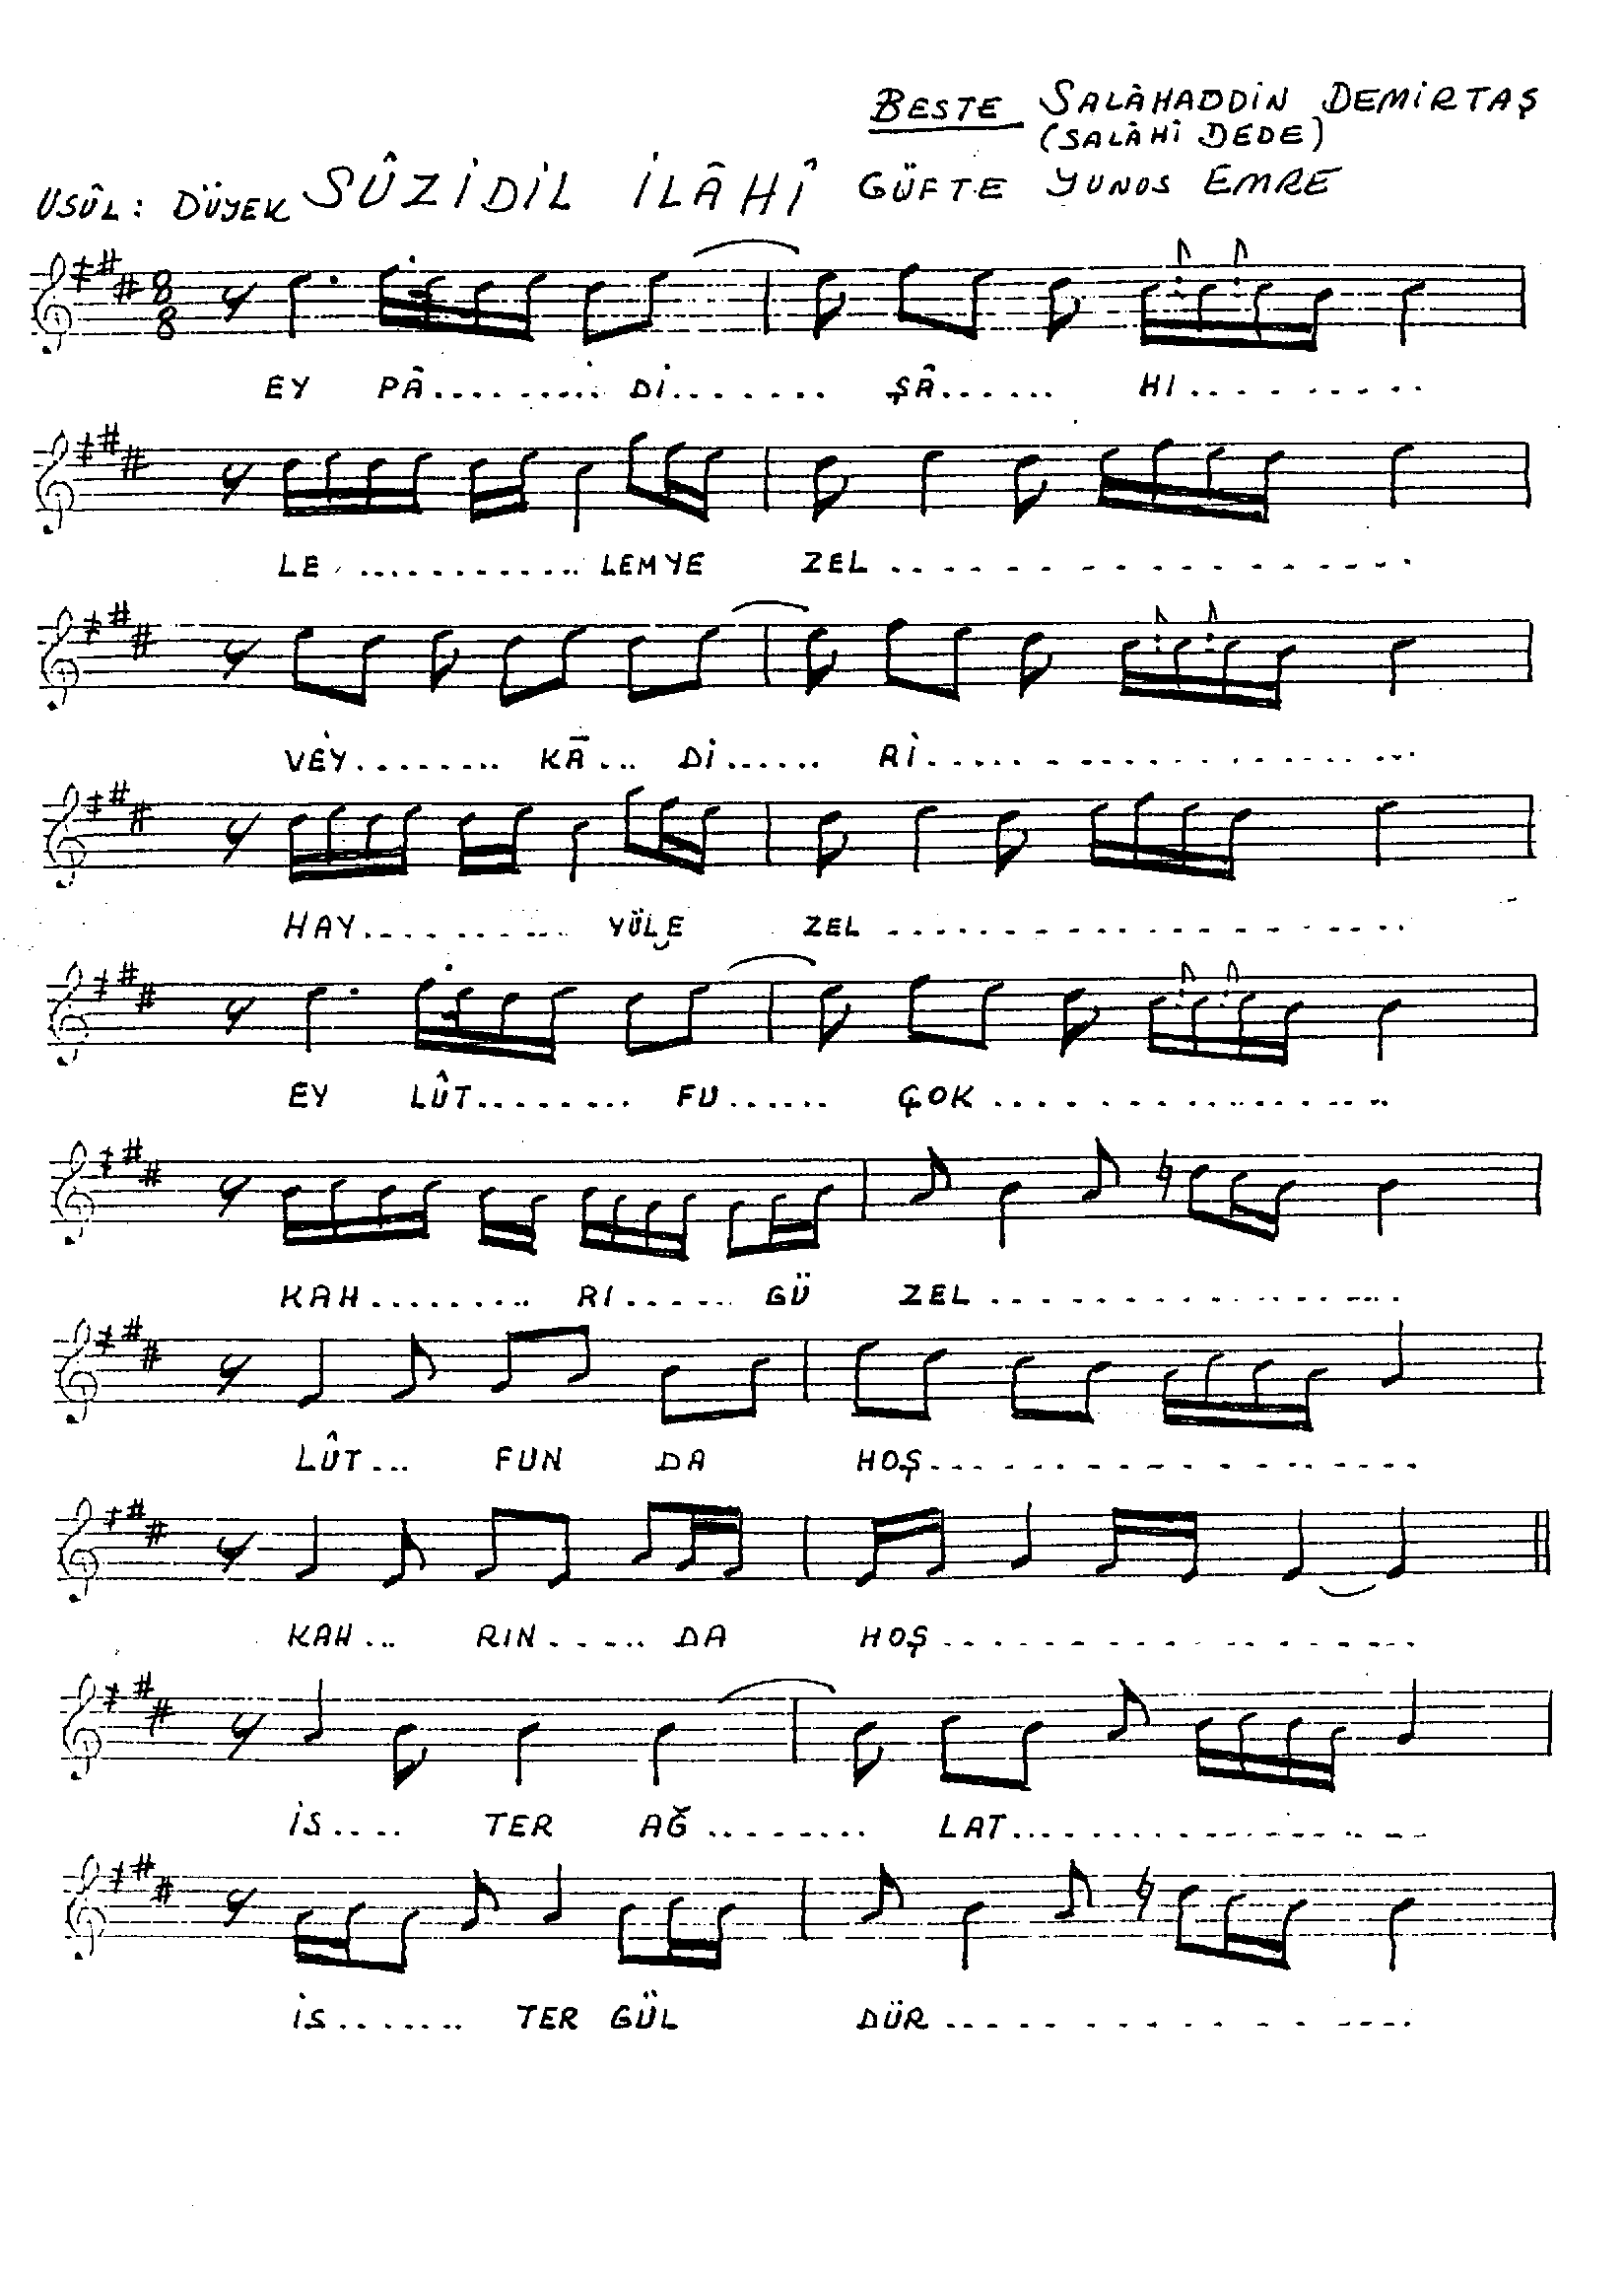 BESTE SALÂHADDİN DEMİRTAŞ
(SALÂHİ DEDE)
USÛL: DÜYEK SÛZİDİL İLÂHÎ GÜFTE YUNUS EMRE
8
8
EY PÂ.......... Dİ....... ŞÂ...... HI.........
LE ........... LEMYE ZEL ................
VEY........ KĀ... Dİ...... Rİ................
HAY.......... YÜLE ZEL ................
EY LÛT........ FU...... ÇOK ...............
KAH......... RI...... GÜ ZEL ................
LÛT... FUN DA HOŞ................
KAH... RIN...... DA HOŞ................
İS.... TER AĞ........ LAT...............
İS....... TER GÜL DÜR ...............